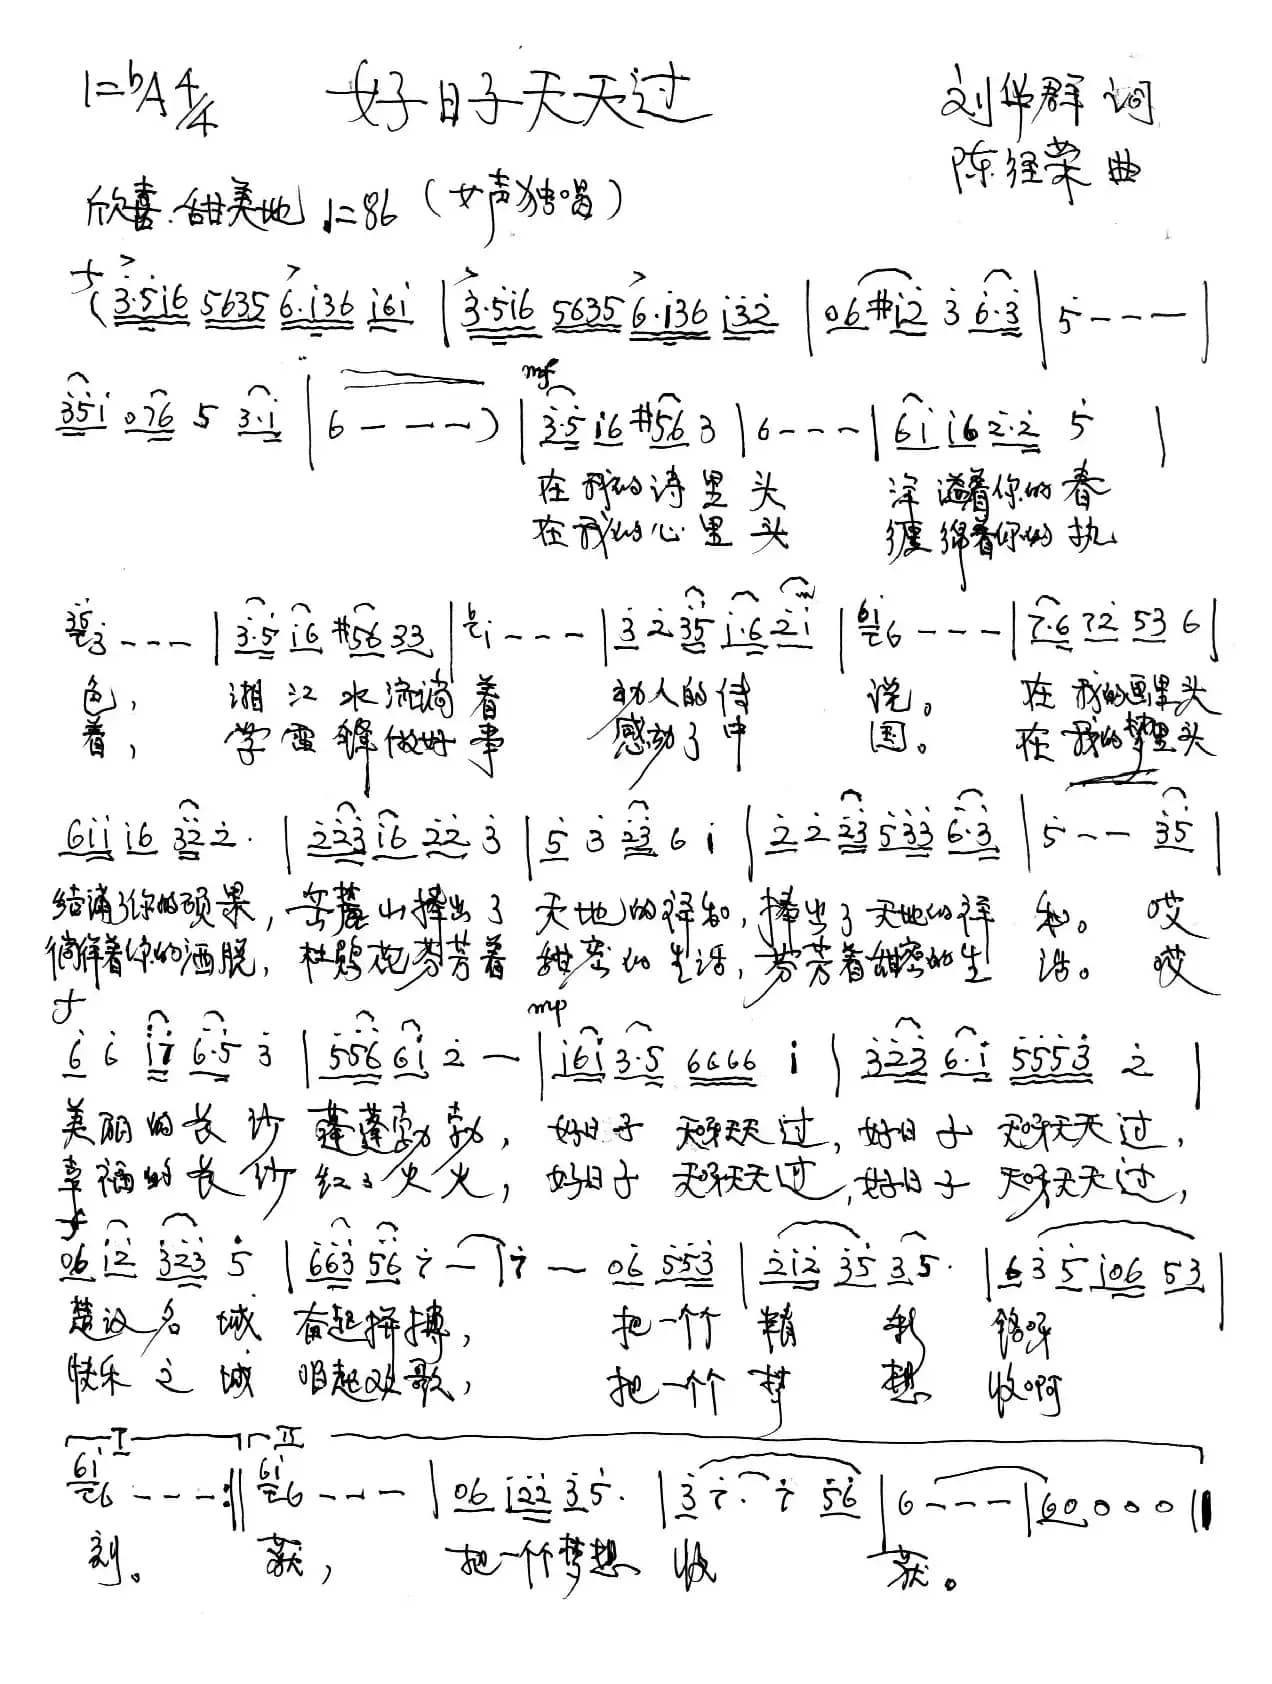 1=♭A 4/4 好日子天天过 刘华群 词
陈经荣 曲
欣喜.甜美地 ♩=86 (女声独唱)
f (3.516 5635 6.136 161 | 3.516 5635 6.136 132 | 06 #12 3 6.3 | 5 - - - |
351 076 5 3.1 | 6 - - - ) | mf 3.5 16 #56 3 | 6 - - - | 61 16 2.2 5 |
在我的诗里头 洋溢着你的春
在我的心里头 缠绵着你的执
35 3 - - - | 3.5 16 #56 33 | 1 - - - | 3 2 35 1.6 21 | 61 6 - - - | 7.6 72 53 6 |
色, 湘江水流淌着 动人的传说。 在我的画里头
着, 学雷锋做好事 感动了中国。 在我的梦里头
611 16 32 2. | 223 16 22 3 | 5 3 23 6 1 | 2 2 23 533 6.3 | 5 - - 35 |
结满了你的硕果, 岳麓山捧出了天地的祥和, 捧出了天地的祥和。 哎
徜徉着你的洒脱, 杜鹃花芬芳着甜蜜的生活, 芬芳着甜蜜的生活。 哎
f mp
6 6 17 6.5 3 | 556 61 2 - | 161 3.5 6666 1 | 323 6.1 5553 2 |
美丽的长沙蓬蓬勃勃, 好日子天呀天天过, 好日子天呀天天过,
幸福的长沙红红火火, 好日子天呀天天过, 好日子天呀天天过,
f
06 12 323 5 | 663 56 7 - | 7 - 06 553 | 212 35 3 5. | 6 3 5 106 53 |
楚汉名城奋起拼搏, 把一个个精彩铭呀
快乐之城唱起欢歌, 把一个个梦想收啊
I II
61 6 - - - :| 61 6 - - - | 06 122 3 5. | 3 7. 7 56 | 6 - - - | 60 0 0 0 ||
刻。 获, 把一个个梦想收获。